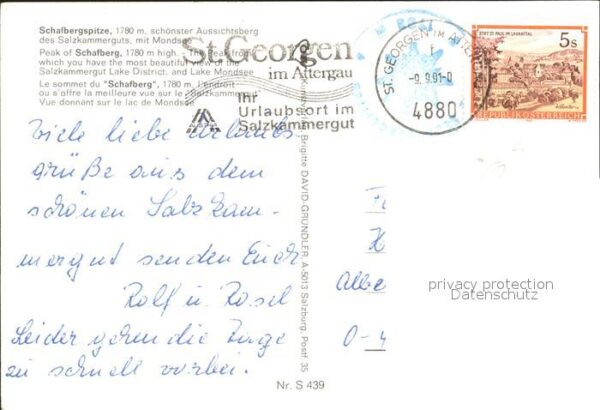 Schafbergspitze, 1780 m, schönster Aussichtsberg
des Salzkammerguts, mit Mondsee
Peak of Schafberg, 1780 m high. - The peak from
which you have the most beautiful view of the
Salzkammergut Lake District, and Lake Mondsee
Le sommet du "Schafberg", 1780 m. L'endroit
ou s'offre la meilleure vue sur le Salzkammergut
Vue donnant sur le lac de Mondsee
St. Georgen
im Attergau
Ihr
Urlaubsort im
Salzkammergut
ST. GEORGEN IM ATTERGAU
-9.9.91-0
4880
STIFT ST. PAUL IM LAVANTTAL
5s
REPUBLIK ÖSTERREICH
Viele liebe Urlaubs
grüße aus dem
schönen Salzkam-
mergut senden Euch
Rolf u. Rosel
Leider gehen die Tage
zu schnell vorbei.
Brigitte DAVID-GRÜNDLER, A-5013 Salzburg, Postf 35
Albe
O-4
privacy protection
Datenschutz
Nr. S 439